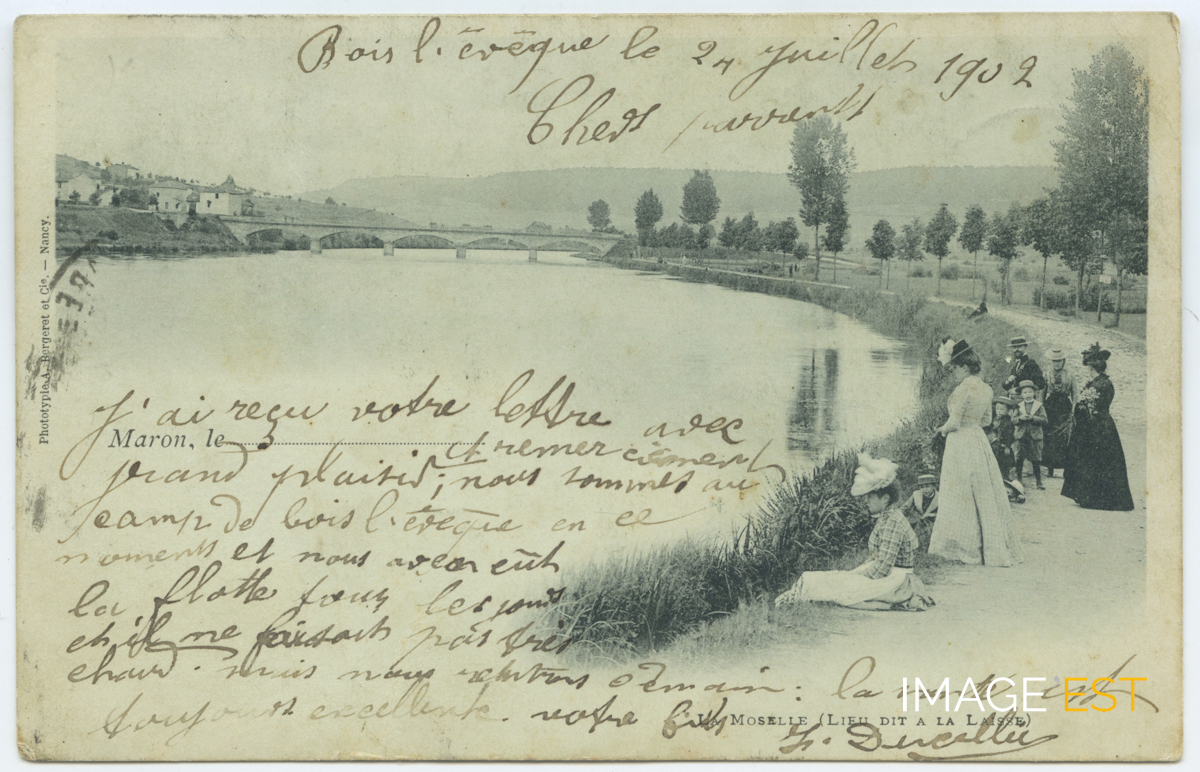 Bois l'évêque le 24 Juillet 1902
Chers parrents
Phototypie A. Bergeret et Cie. — Nancy.
J'ai reçu votre lettre avec
Maron, le
grand plaisir, et remerciement
; nous sommes au
camp de bois l'évêque en ce
moments et nous avons eût
la flotte tous les jours
et il ne faisait pas très
chaud. mais nous rentrons demain : la santé est
toujours excellente. votre fils
LA MOSELLE (LIEU DIT A LA LAISSE)
IMAGE EST